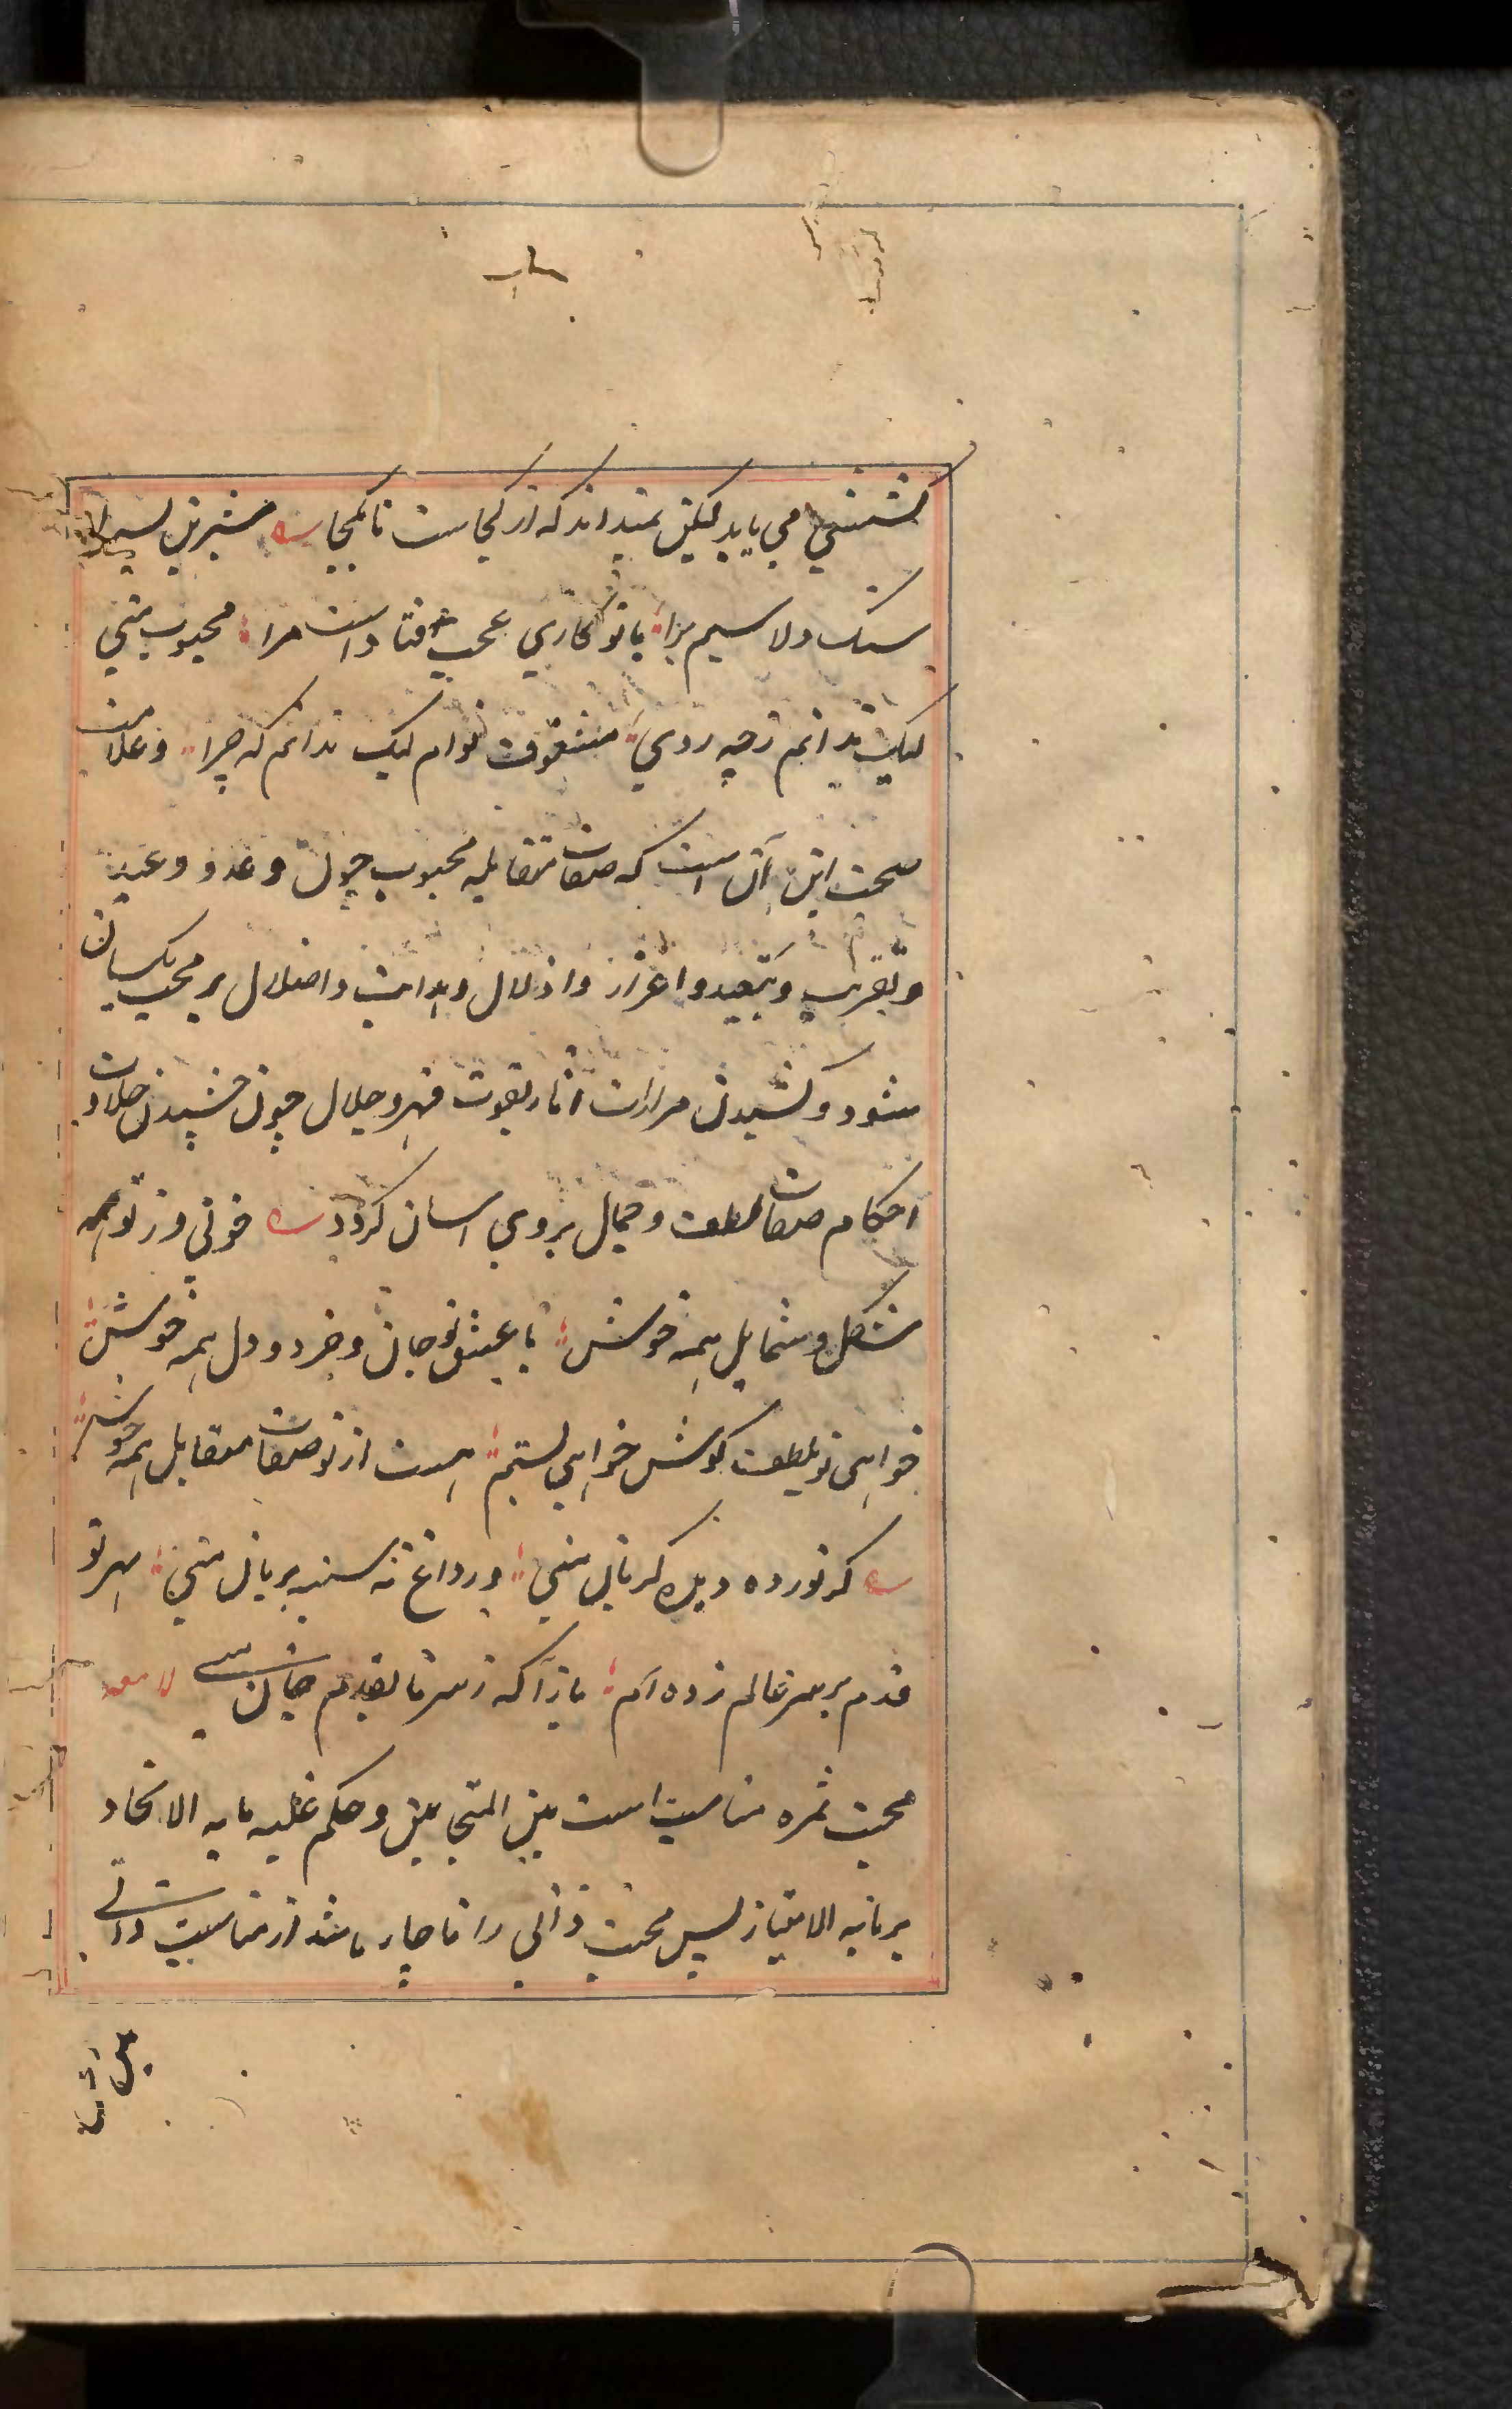 کششی می یابد لیکن نمیداند که از کجاست تا کجا شیرین پسرا
سنک دلا سیم برا با تو کاری عجب افتاد است مرا محبوب منی
لیک ندانم زچه روی معشوق توام لیک ندانم که چرا و علامت
صحت این آن است که صفات متقابله محبوب چون وعد و وعید
و تقریب و تبعید و اعزاز و اذلال و هدایت و اضلال بر محب یکسان
شود و کشیدن مرارات آثار نعوت قهر و جلال چون چشیدن حلاوت
احکام صفات لطف و جمال بر وی اسان کردد خوبی و ز تو همه
شکل و شمایل همه خوش با عشق تو جان و خرد و دل همه خوش
خواهی تو بلطف کوش خواهی بستم هست از تو صفات متقابل همه خوش
کر نور ده دیده کریان منی ور داغ نه سینه بریان منی بهر تو
قدم بر سر عالم زده ام باز آ که ز سر تا بقدم جان منی لامعه
محبت ثمره مناسبت است بین المتحابین و حکم غلبه ما به الاتحاد
بر ما به الامتیاز پس محبت ذاتی را ناچار باشد از مناسبت ذاتی